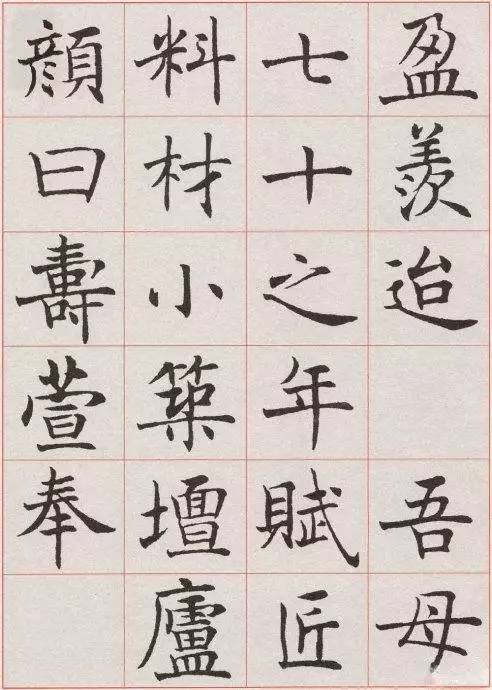 盈羨迨 吾母
七十之年賦匠
料材小築壇廬
顔曰壽萱奉